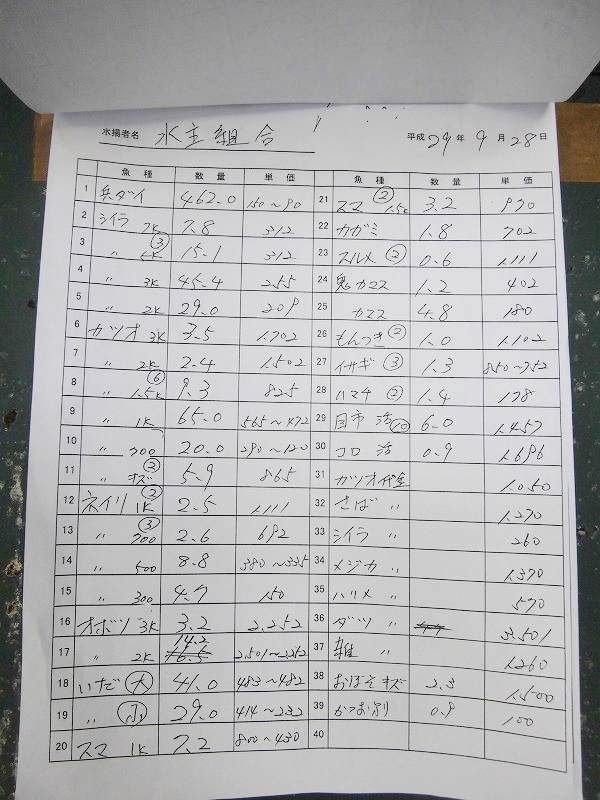 水揚者名 水主組合
平成 29年 9月 28日
魚種 数量 単価
1 兵ダイ 462.0 150~90
2 シイラ 7K 7.8 312
3 〃 ③ 15.1 312
4 〃 3K 45.4 255
5 〃 2K 29.0 209
6 カツオ 3K 3.5 1.702
7 〃 2K 2.4 1.502
8 〃 ⑥ 1.5K 9.3 825
9 〃 1K 65.0 565~472
10 〃 700 20.0 290~120
11 〃 ② キズ 5.9 865
12 ネイリ ② 1K 2.5 1.111
13 〃 ③ 700 2.6 692
14 〃 500 8.8 380~335
15 〃 300 4.7 150
16 オボソ 3K 3.2 2.252
17 〃 2K 14.2 2.501~2.252
18 いだ 大 41.0 483~482
19 〃 小 29.0 414~232
20 スマ 1K 7.2 800~430
魚種 数量 単価
21 スマ ② 1.5K 3.2 970
22 カガミ 1.8 702
23 スルメ ② 0.6 1.111
24 鬼カマス 1.2 402
25 カマス 4.8 180
26 もんつき ② 1.0 1.102
27 イサギ ③ 1.3 850~752
28 ハマチ ② 1.4 178
29 目市 活 ⑩ 6.0 1.457
30 コロ 活 0.9 1.696
31 カツオ 1.050
32 さば 〃 1.270
33 シイラ 〃 260
34 メジカ 〃 1.370
35 ハリメ 〃 570
36 ダツ 〃 3.501
37 雑 〃 1.260
38 おぼそ キズ 2.3 1.500
39 かつお別 0.9 100
40